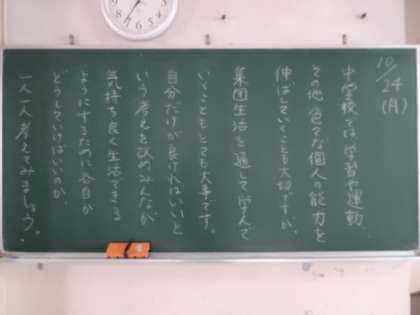 10/24
(月)
中学校では学習や運動、
その他色々な個人の能力を
伸ばしていくことも大切ですが、
集団生活を通して学んで
いくこともとても大事です。
自分だけが良ければいいと
いう考えを改めみんなが
気持ち良く生活できる
ようにするために各自が
どうしていけばいいのか、
一人一人考えてみましょう。